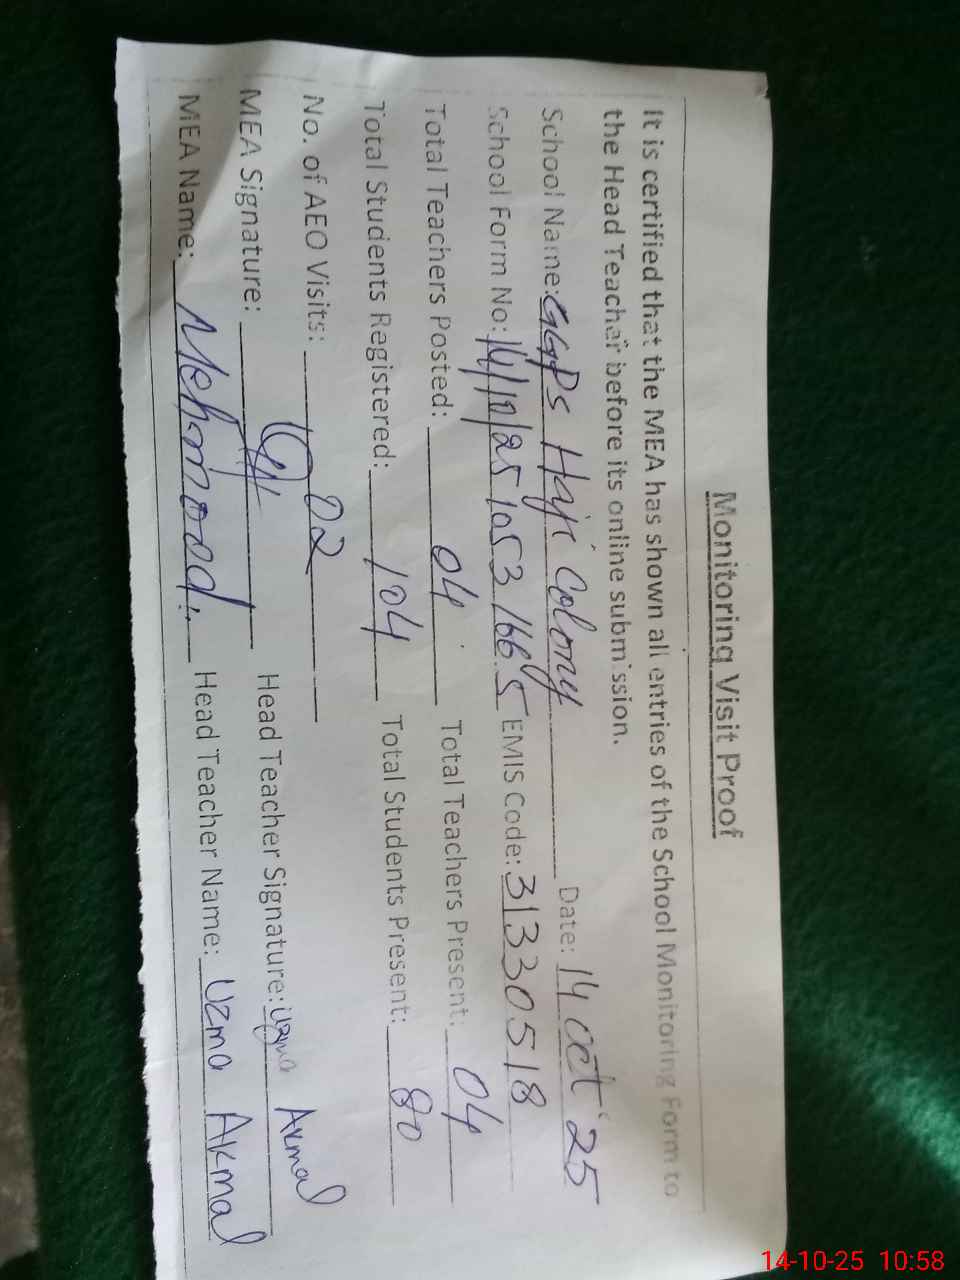 Monitoring Visit Proof
It is certified that the MEA has shown all entries of the School Monitoring Form to
the Head Teacher before its online submission.
School Name: GGPS Haji Colony Date: 14 Oct 25
School Form No: 14/10/25 1053 1665 EMIS Code: 31330518
Total Teachers Posted: 04 Total Teachers Present: 04
Total Students Registered: 104 Total Students Present: 80
No. of AEO Visits: 02
MEA Signature: Head Teacher Signature: Uzma Akmal
MEA Name: Mehmood Head Teacher Name: Uzma Akmal
14-10-25 10:58